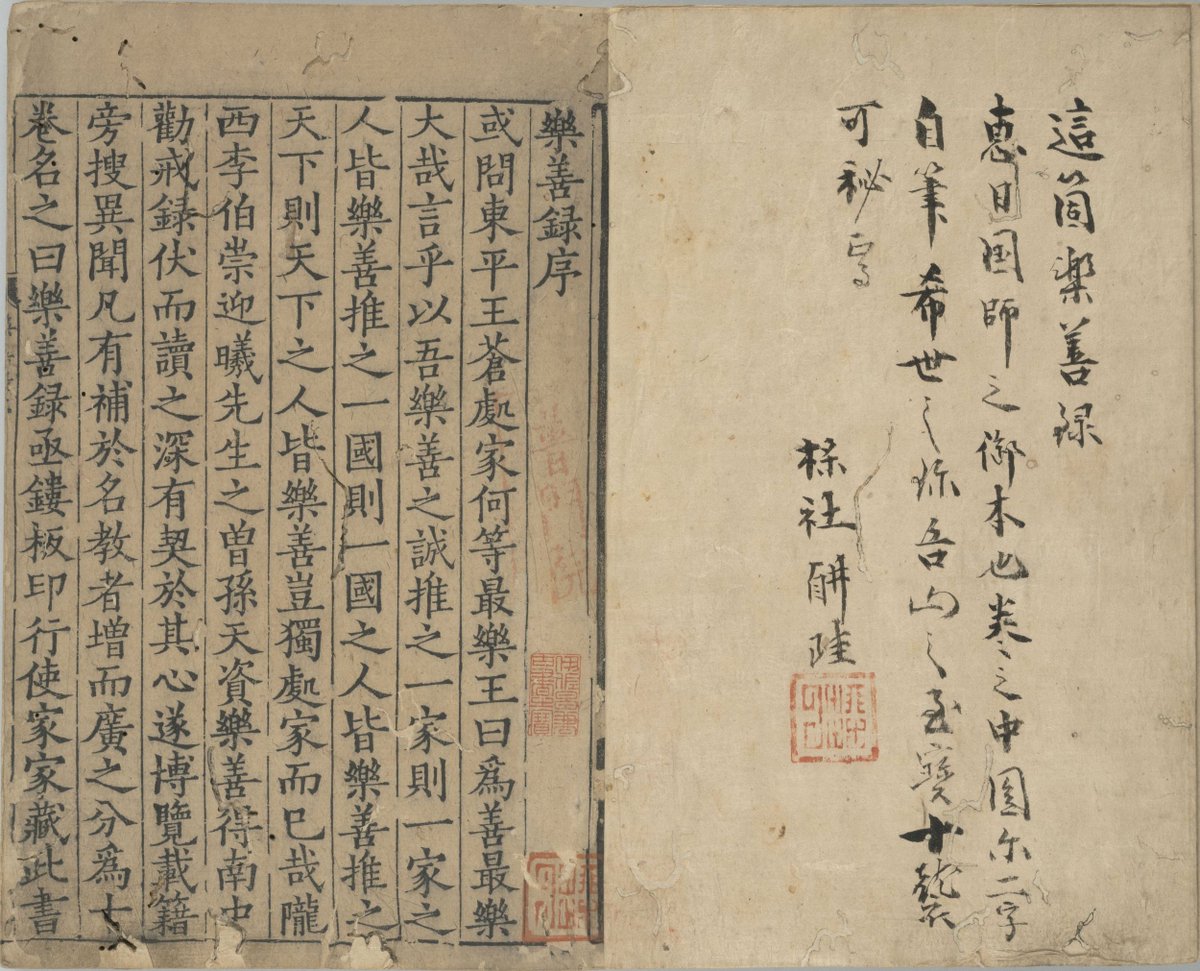 這箇楽善録
恵日国師之御本也巻之中圓尓二字
自筆希世之珎吾山之至寳十襲
可秘焉
社
樂善録序
或問東平王蒼處家何等最樂王曰爲善最樂
大哉言乎以吾樂善之誠推之一家則一家之
人皆樂善推之一國則一國之人皆樂善推之
天下則天下之人皆樂善豈獨處家而已哉隴
西李伯崇迎曦先生之曽孫天資樂善得南中
勸戒録伏而讀之深有契於其心遂博覽載籍
旁搜異聞凡有補於名教者增而廣之分爲十
卷名之曰樂善録亟鏤板印行使家家藏此書